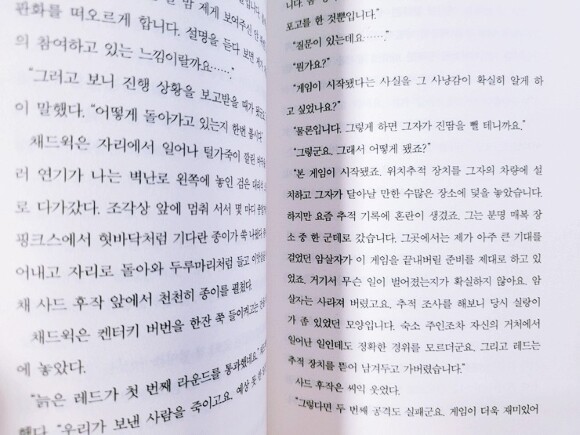 판화를 떠오르게 합니다. 설명을 듣다 보면
의 참여하고 있는 느낌이랄까요……."
"그러고 보니 진행 상황을 보고받을 때가
이 말했다. "어떻게 돌아가고 있는지 한번
채드윅은 자리에서 일어나 털가죽이 깔린
러 연기가 나는 벽난로 왼쪽에 놓인 검은
로 다가갔다. 조각상 앞에 멈춰 서서 몇 마디
핑크스에서 혓바닥처럼 기다란 종이가 쑥
어내고 자리로 돌아와 두루마리처럼 들고
채 사드 후작 앞에서 천천히 종이를 펼쳤다.
채드윅은 켄터키 버번을 한잔 쭉 들이켜고는
에 놓았다.
"늙은 레드가 첫 번째 라운드를 통과했네요."
했다. "우리가 보낸 사람을 죽이고요. 예상
보고를 한 것뿐입니다."
"질문이 있는데요……."
"뭔가요?"
"게임이 시작됐다는 사실을 그 사냥감이 확실히 알게 하
고 싶었나요?"
"물론입니다. 그렇게 하면 그자가 진땀을 뺄 테니까요."
"그렇군요. 그래서 어떻게 됐죠?"
"본 게임이 시작됐죠. 위치추적 장치를 그자의 차량에 설
치하고 그자가 달아날 만한 수많은 장소에 덫을 놓았습니다.
하지만 요즘 추적 기록에 혼란이 생겼죠. 그는 분명 매복 장
소 중 한 군데로 갔습니다. 그곳에서는 제가 아주 큰 기대를
걸었던 암살자가 이 게임을 끝내버릴 준비를 제대로 하고 있
었죠. 거기서 무슨 일이 벌어졌는지가 확실하지 않아요. 암
살자는 사라져 버렸고요. 추적 조사를 해보니 당시 실랑이
가 좀 있었던 모양입니다. 숙소 주인조차 자신의 거처에서
일어난 일인데도 정확한 경위를 모르더군요. 그리고 레드는
추적 장치를 뜯어 남겨두고 가버렸습니다."
사드 후작은 씩익 웃었다.
"그렇다면 두 번째 공격도 실패군요. 게임이 더욱 재미있어